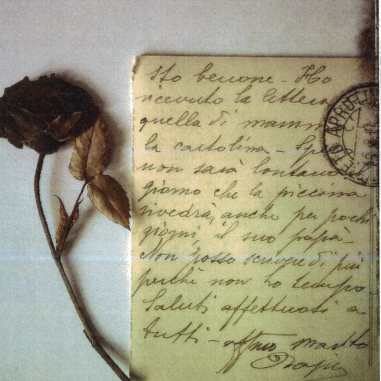 Sto benone - Ho
ricevuto la lettera
quella di mamm
la cartolina - Sp
non sarà lontano
giorno che la piccina
rivedrà, anche per pochi
giorni, il suo papà.
Non posso scrivere di più
perchè non ho tempo.
Saluti affettuosi a
tutti - aff/mo marito